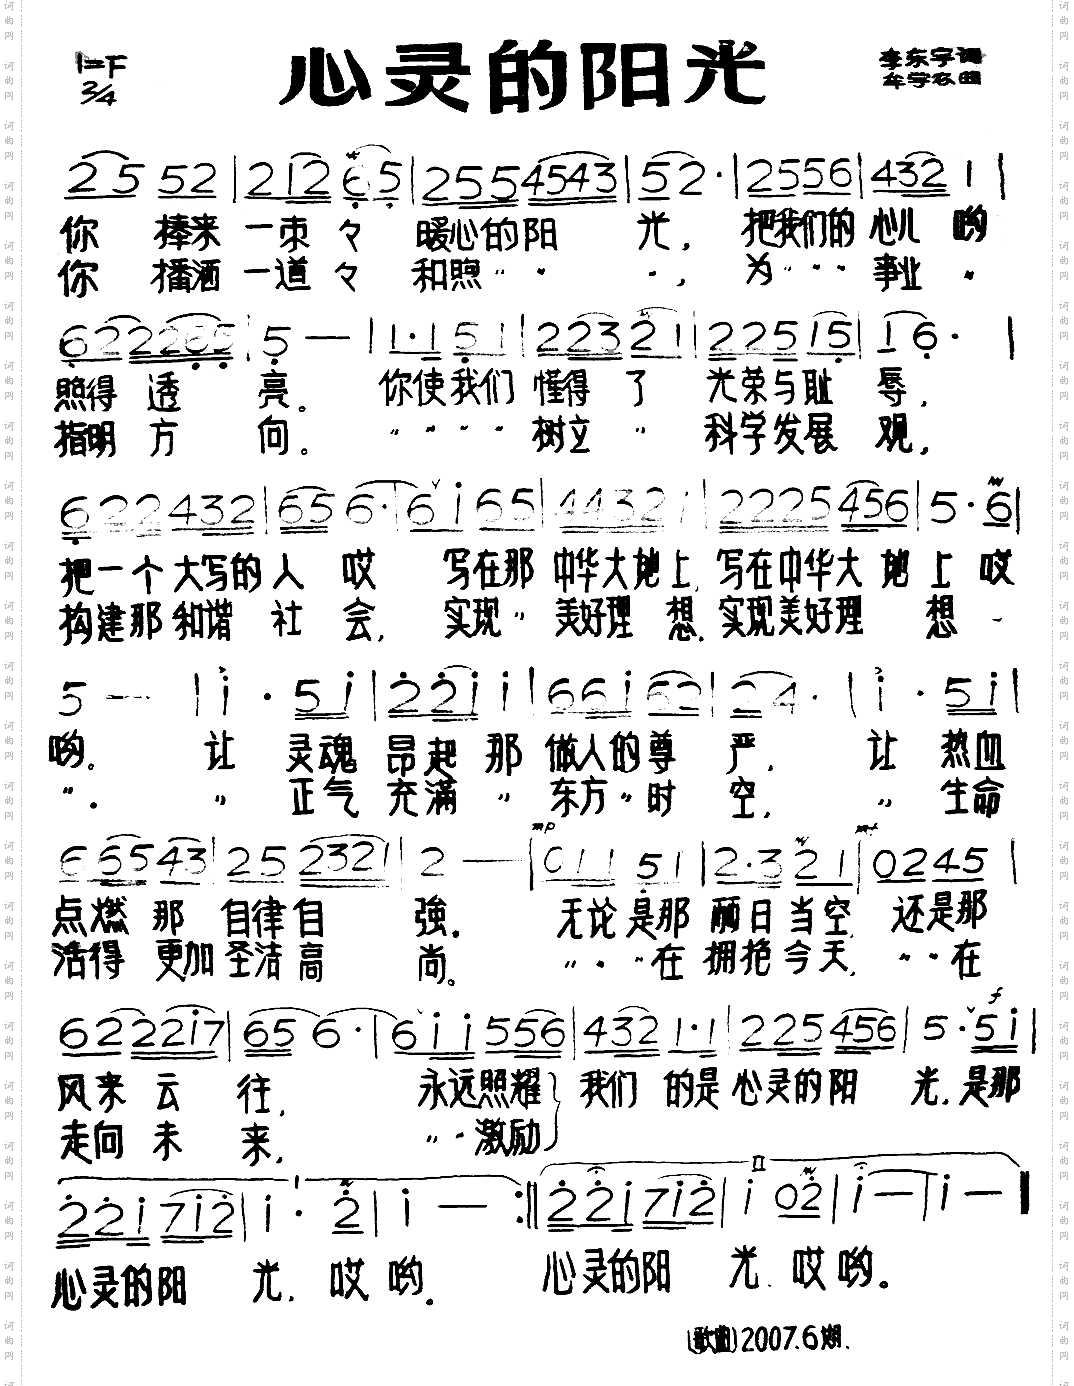 心灵的阳光
1=F 3/4
李东宇词
牟学农曲
2 5 5 2 | 2 1 2 6 5 | 2 5 5 4 5 4 3 | 5 2 · | 2 5 5 6 | 4 3 2 1 |
你 捧来 一束々 暖心的阳 光, 把我们的 心儿 哟
你 播洒 一道々 和煦〃〃 〃, 为〃〃〃 事业 〃
6 2 2 2 6 5 | 5 — | 1 · 1 5 1 | 2 2 3 2 1 | 2 2 5 1 5 | 1 6 · |
照得 透 亮。 你使我们 懂得 了 光荣与耻 辱,
指明 方 向。 〃〃〃〃 树立 〃 科学发展 观,
6 2 2 4 3 2 | 6 5 6 · | 6 i 6 5 | 4 4 3 2 1 | 2 2 2 5 4 5 6 | 5 · 6 |
把一个 大写的 人 哎 写在那 中华大地上, 写在中华大 地 上 哎
构建那 和谐 社 会, 实现〃 美好理 想, 实现美好理 想 -
5 — | i · 5 i | 2 2 i i | 6 6 i 6 2 | 2 4 · | i · 5 i |
哟。 让 灵魂 昂起 那 做人的尊 严, 让 热血
〃. 〃 正气 充满 〃 东方〃时 空, 〃 生命
6 6 5 4 3 | 2 5 2 3 2 1 | 2 — | 0 1 1 5 1 | 2 · 3 2 1 | 0 2 4 5 |
mp mf
点燃 那 自律自 強. 无论是那 丽日当空, 还是那
活得 更加圣洁高 尚。 〃〃〃在 拥抱今天, 〃〃〃在
6 2 2 2 i 7 | 6 5 6 · | 6 i i 5 5 6 | 4 3 2 1 · 1 | 2 2 5 4 5 6 | 5 · 5 i |
f
风来 云 往, 永远照耀 我们 的是 心灵的阳 光, 是那
走向 未 来, 〃〃激励
I II
2 2 i 7 i 2 | i · 2 | i — :‖ 2 2 i 7 i 2 | i 0 2 | i — | i — ‖
心灵的阳 光, 哎 哟. 心灵的阳 光. 哎 哟。
(歌曲)2007.6期.
词曲网